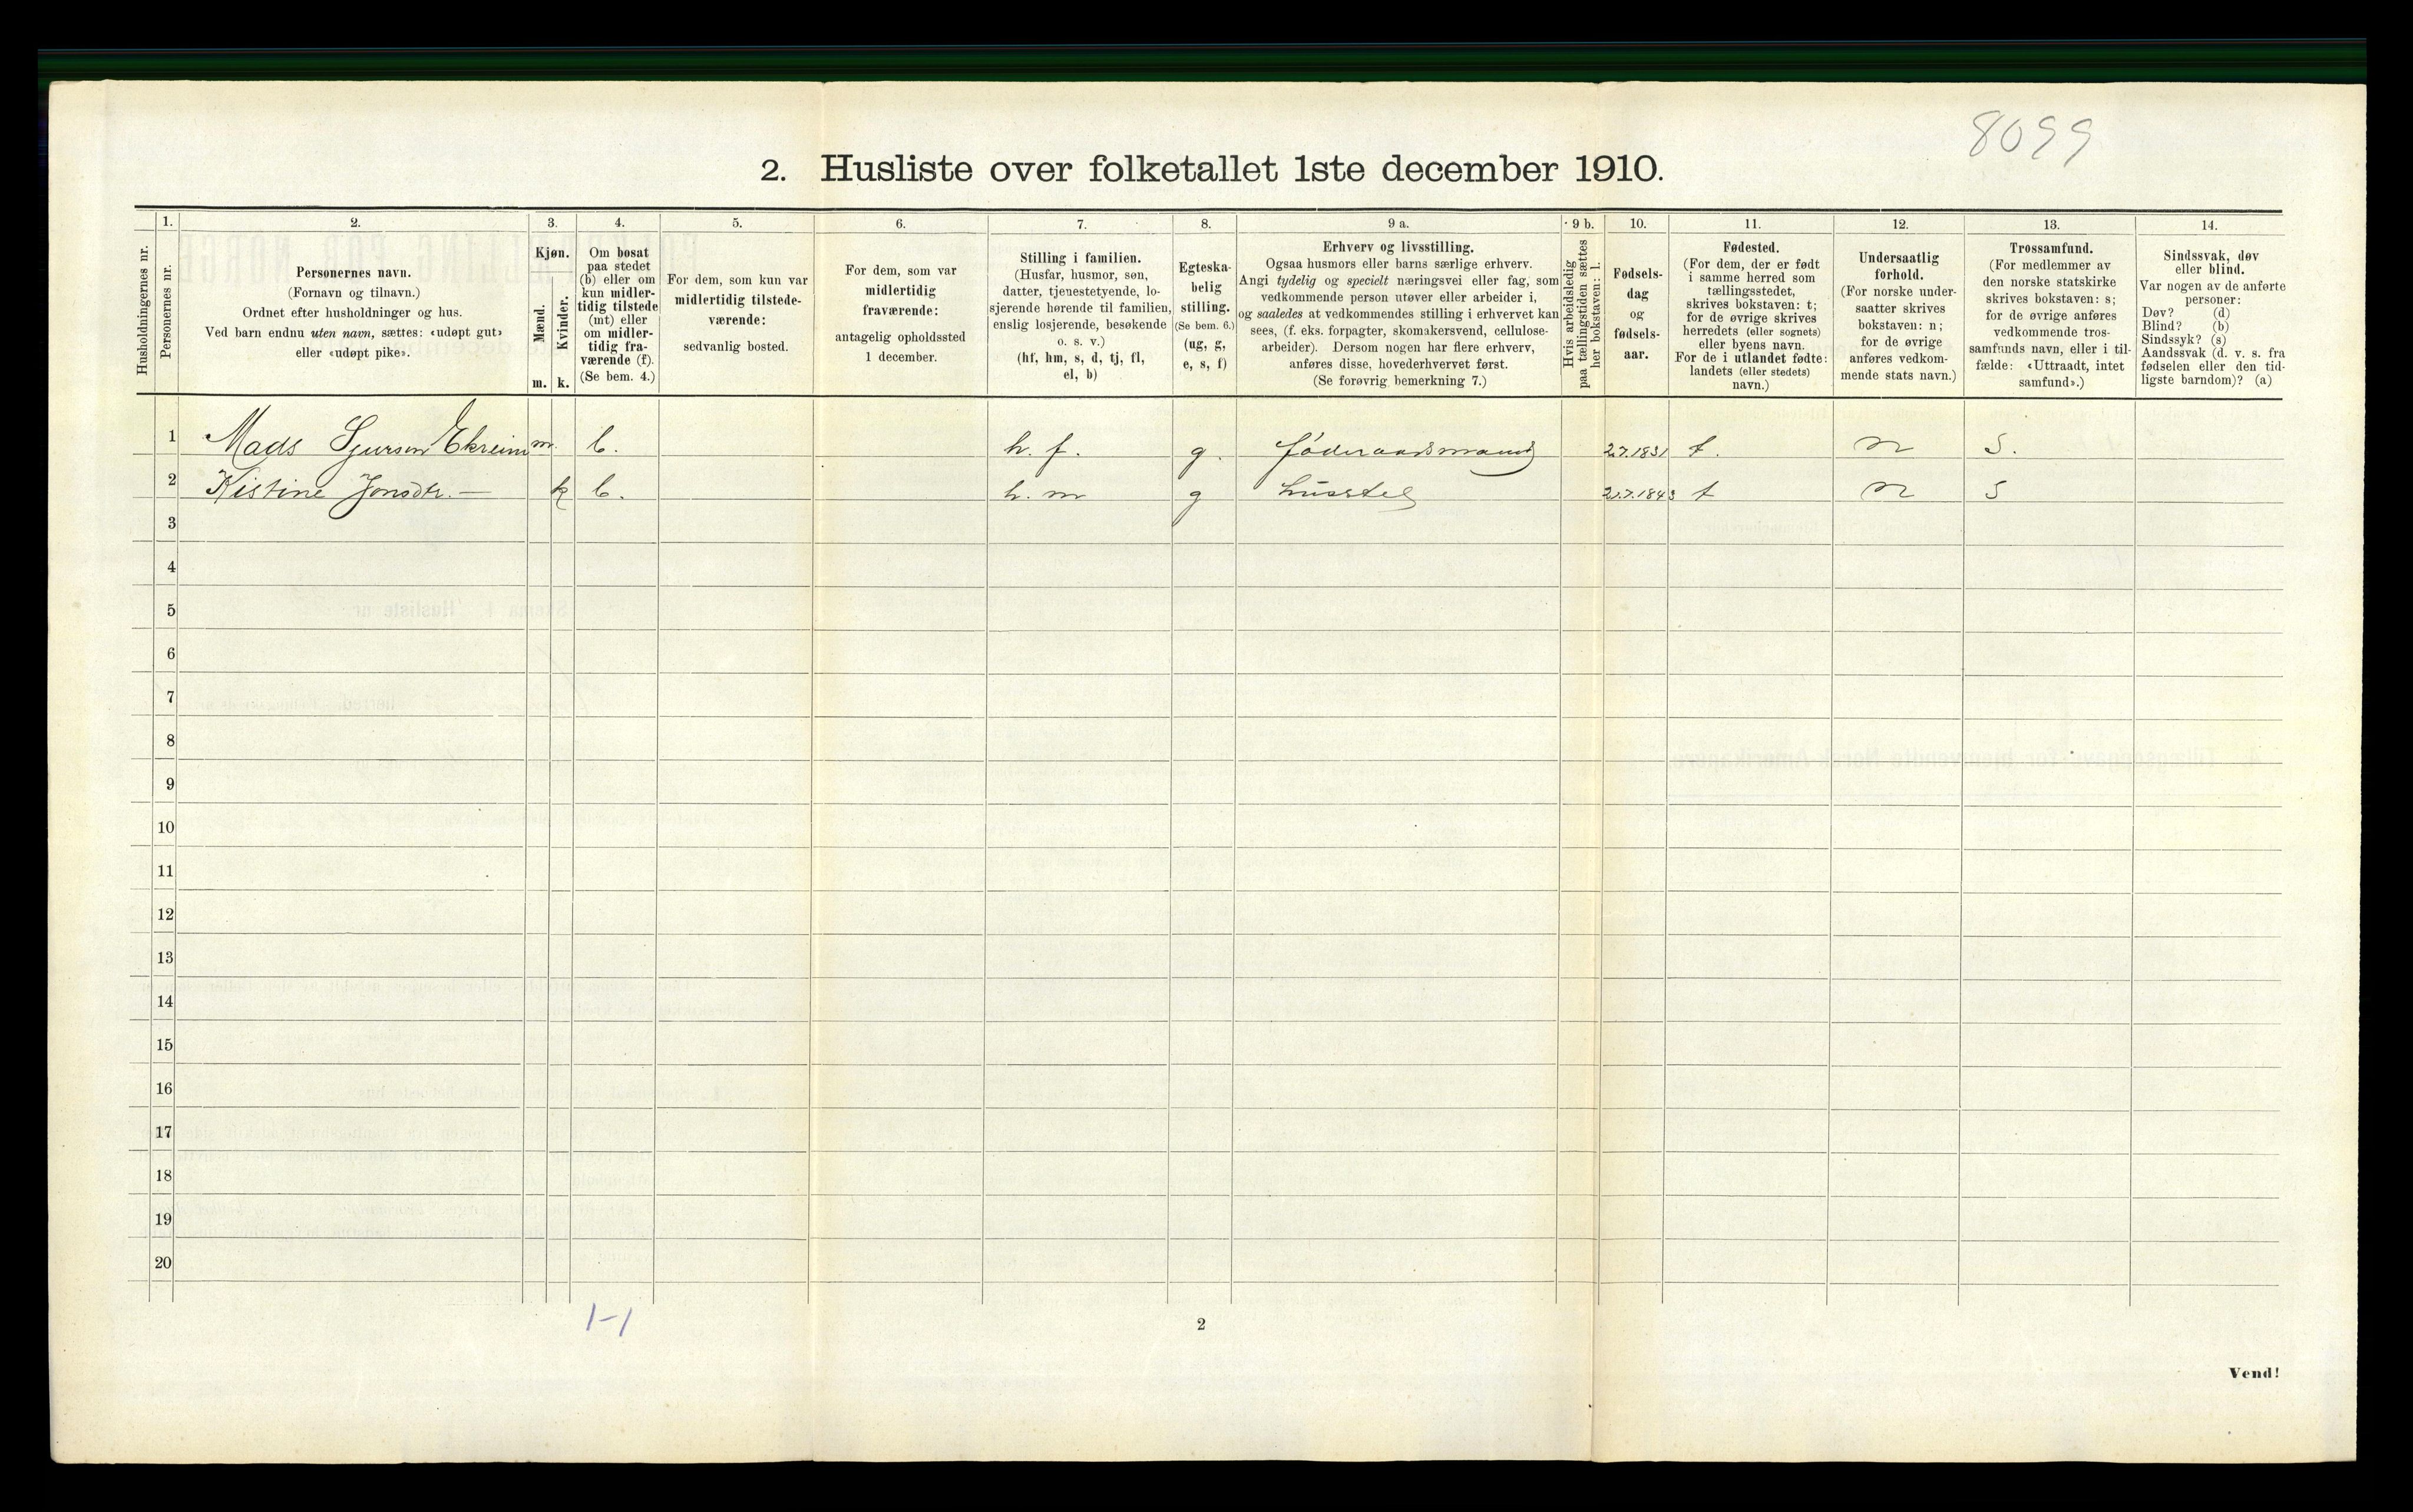 8099
2. Husliste over folketallet 1ste december 1910.
Husholdningernes nr.
1.
Personernes nr.
2.
Personernes navn.
(Fornavn og tilnavn.)
Ordnet efter husholdninger og hus.
Ved barn endnu uten navn, sættes: «udøpt gut»
eller «udøpt pike».
3.
Kjøn.
Mænd.
Kvinder.
m. k.
4.
Om bosat
paa stedet
(b) eller om
kun midler-
tidig tilstede
(mt) eller
om midler-
tidig fra-
værende (f).
(Se bem. 4.)
5.
For dem, som kun var
midlertidig tilstede-
værende:
sedvanlig bosted.
6.
For dem, som var
midlertidig
fraværende:
antagelig opholdssted
1 december.
7.
Stilling i familien.
(Husfar, husmor, søn,
datter, tjenestetyende, lo-
sjerende hørende til familien,
enslig losjerende, besøkende
o. s. v.)
(hf, hm, s, d, tj, fl,
el, b)
8.
Egteska-
belig
stilling.
(Se bem. 6.)
(ug, g,
e, s, f)
9 a.
Erhverv og livsstilling.
Ogsaa husmors eller barns særlige erhverv.
Angi tydelig og specielt næringsvei eller fag, som
vedkommende person utøver eller arbeider i,
og saaledes at vedkommendes stilling i erhvervet kan
sees, (f. eks. forpagter, skomakersvend, cellulose-
arbeider). Dersom nogen har flere erhverv,
anføres disse, hovederhvervet først.
(Se forøvrig bemerkning 7.)
9 b.
Hvis arbeidsledig
paa tællingstiden sættes
her bokstaven: l.
10.
Fødsels-
dag
og
fødsels-
aar.
11.
Fødested.
(For dem, der er født
i samme herred som
tællingsstedet,
skrives bokstaven: t;
for de øvrige skrives
herredets (eller sognets)
eller byens navn.
For de i utlandet fødte:
landets (eller stedets)
navn.)
12.
Undersaatlig
forhold.
(For norske under-
saatter skrives
bokstaven: n;
for de øvrige
anføres vedkom-
mende stats navn.)
13.
Trossamfund.
(For medlemmer av
den norske statskirke
skrives bokstaven: s;
for de øvrige anføres
vedkommende tros-
samfunds navn, eller i til-
fælde: «Uttraadt, intet
samfund».)
14.
Sindssvak, døv
eller blind.
Var nogen av de anførte
personer:
Døv? (d)
Blind? (b)
Sindssyk? (s)
Aandssvak (d. v. s. fra
fødselen eller den tid-
ligste barndom)? (a)
1 Mads Sjursen Ekreim m. b. h. f. g. føderaadsmand 2.7.1831 t. n s.
2 Kistine Jonsdtr. — k b. h. m g husstel 2.7.1843 t n s
3
4
5
6
7
8
9
10
11
12
13
14
15
16
17
18
19
20
1-1
2
Vend!